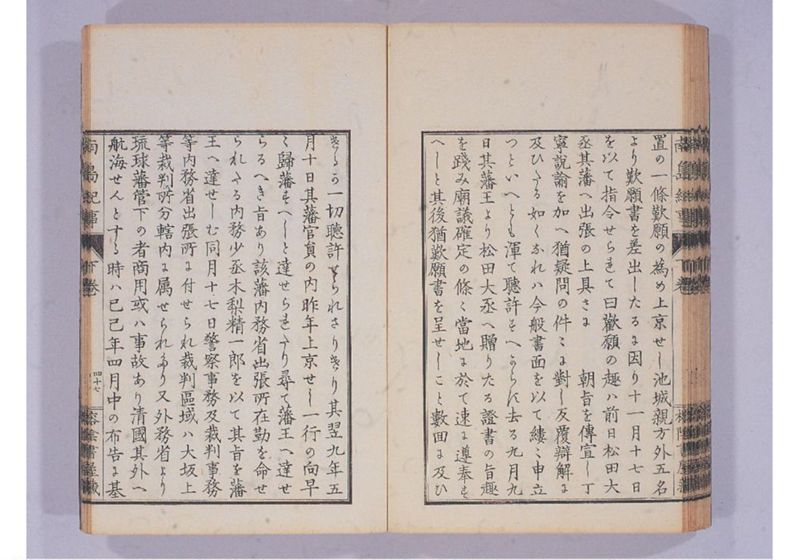 置の一條歎願の為め上京せし池城親方外五名
より歎願書を差出したるに因り十一月十七日
を以て指令せられて曰歎願の趣ハ前日松田大
丞其藩へ出張の上具さに　朝旨を傳宣し丁
寧説諭を加へ猶疑問の件々に對し反覆辯解に
及ひたる如くなれハ今般書面を以て縷々申立
つといへとも渾て聽許すへからす去る九月九
日其藩王より松田大丞へ贈りたる證書の旨趣
を踐み廟議確定の條々當地に於て速に遵奉す
へしと其後猶歎願書を呈せしこと數回に及ひ
一切聽許せられさりき其翌九年五
月十日其藩官員の内昨年上京せし一行の向早
く歸藩すへしと達せられたり尋て藩王へ達せ
らるへき旨あり該藩内務省出張所在勤を命せ
られたる内務少丞木梨精一郎を以て其旨を藩
王へ達せしむ同月十七日警察事務及裁判事務
等内務省出張所に付せられ裁判區域ハ大坂上
等裁判所分轄内に属せられたり又外務省より
琉球藩管下の者商用或ハ事故あり清國其外へ
航海せんとする時ハ已己年四月中の布告に基
南島紀事　下巻　四十七